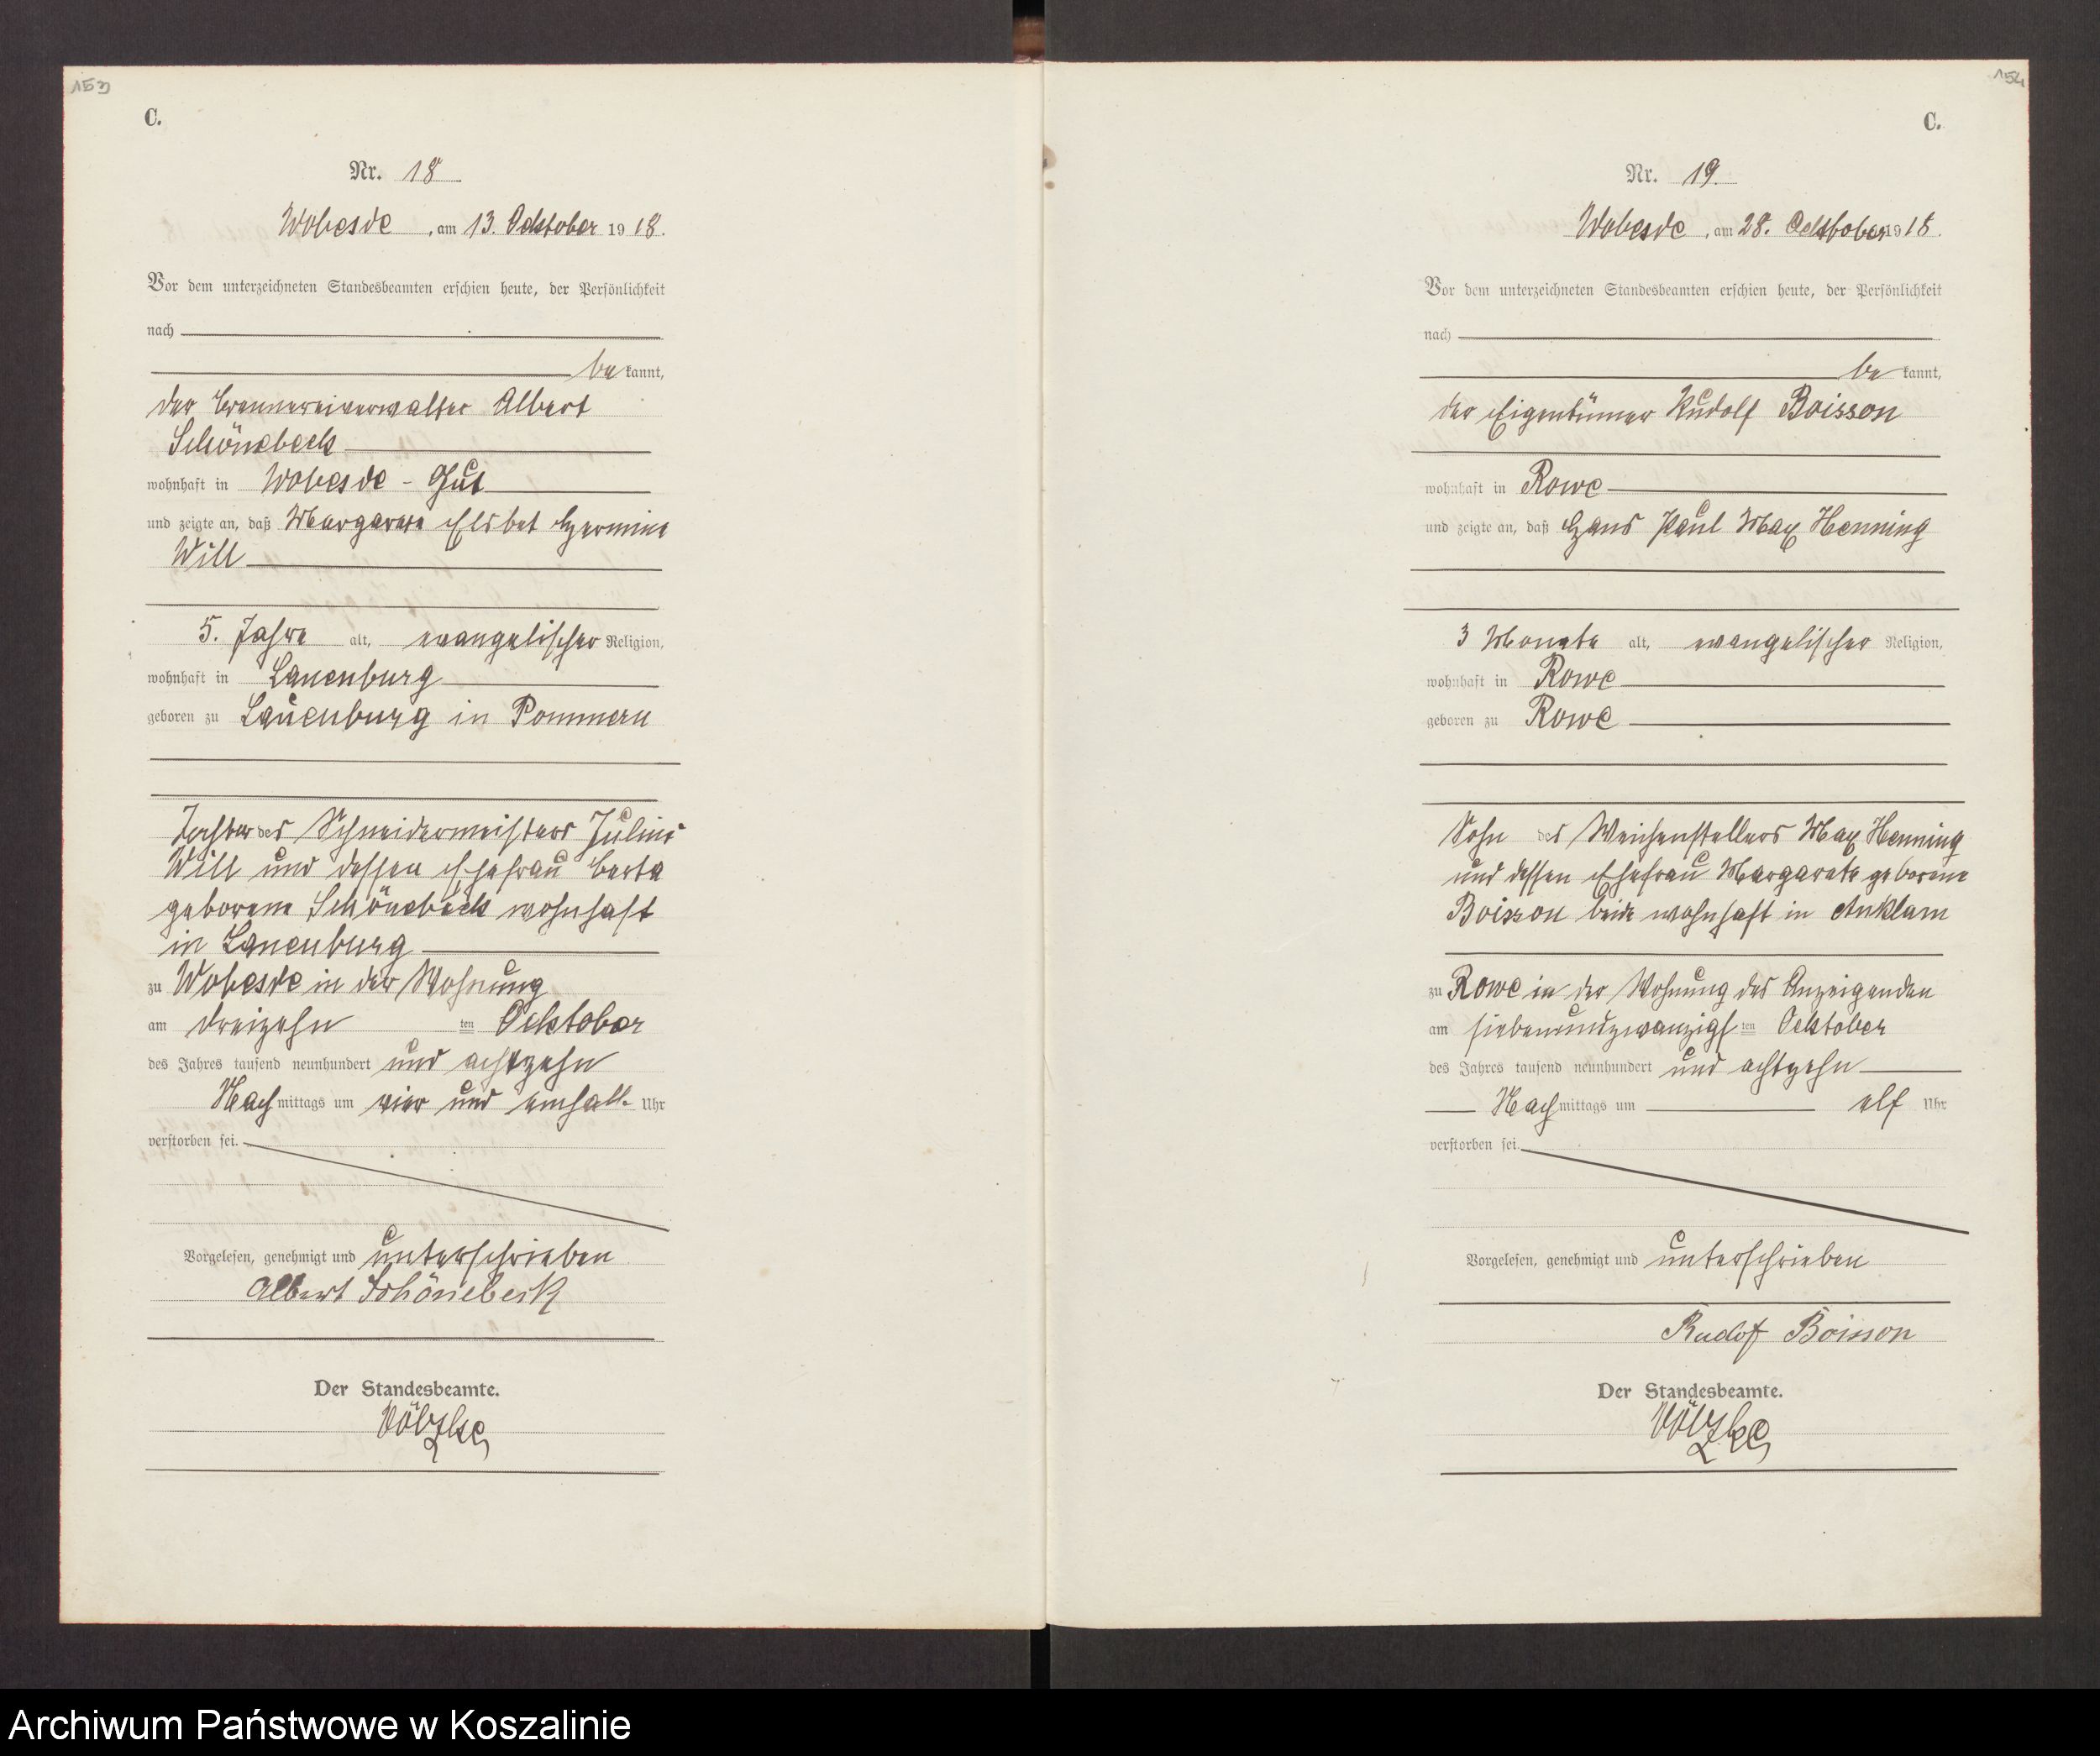 153
C.
Nr. 18
Wobesde, am 13. Ocktober 1918.
Vor dem unterzeichneten Standesbeamten erschien heute, der Persönlichkeit
nach
bekannt,
der Brennereiverwalter Albert
Schönebeck
wohnhaft in Wobesde - Gut
und zeigte an, daß Margarete Elsbet Hermine
Will
5. Jahre alt, evangelischer Religion,
wohnhaft in Lauenburg
geboren zu Lauenburg in Pommern
Tochter des Schneidermeisters Julius
Will und dessen Ehefrau Berta
geborene Schönebeck wohnhaft
in Lauenburg
zu Wobesde in der Wohnung
am dreizehn ten Ocktober
des Jahres tausend neunhundert und achtzehn
Nachmittags um vier und einhalb Uhr
verstorben sei.
Vorgelesen, genehmigt und unterschrieben
Albert Schönebeck
Der Standesbeamte.
154
C.
Nr. 19.
Wobesde, am 28. Ocktober 1918.
Vor dem unterzeichneten Standesbeamten erschien heute, der Persönlichkeit
nach
bekannt,
der Eigentümer Rudolf Boisson
wohnhaft in Rowe
und zeigte an, daß Hans Paul Max Henning
3 Monate alt, evangelischer Religion,
wohnhaft in Rowe
geboren zu Rowe
Sohn des Weichenstellers Max Henning
und dessen Ehefrau Margarete geborene
Boisson beide wohnhaft in Anklam
zu Rowe in der Wohnung des Anzeigenden
am siebenundzwanzigsten Ocktober
des Jahres tausend neunhundert und achtzehn
Nachmittags um elf Uhr
verstorben sei.
Vorgelesen, genehmigt und unterschrieben
Rudolf Boisson
Der Standesbeamte.
Archiwum Państwowe w Koszalinie